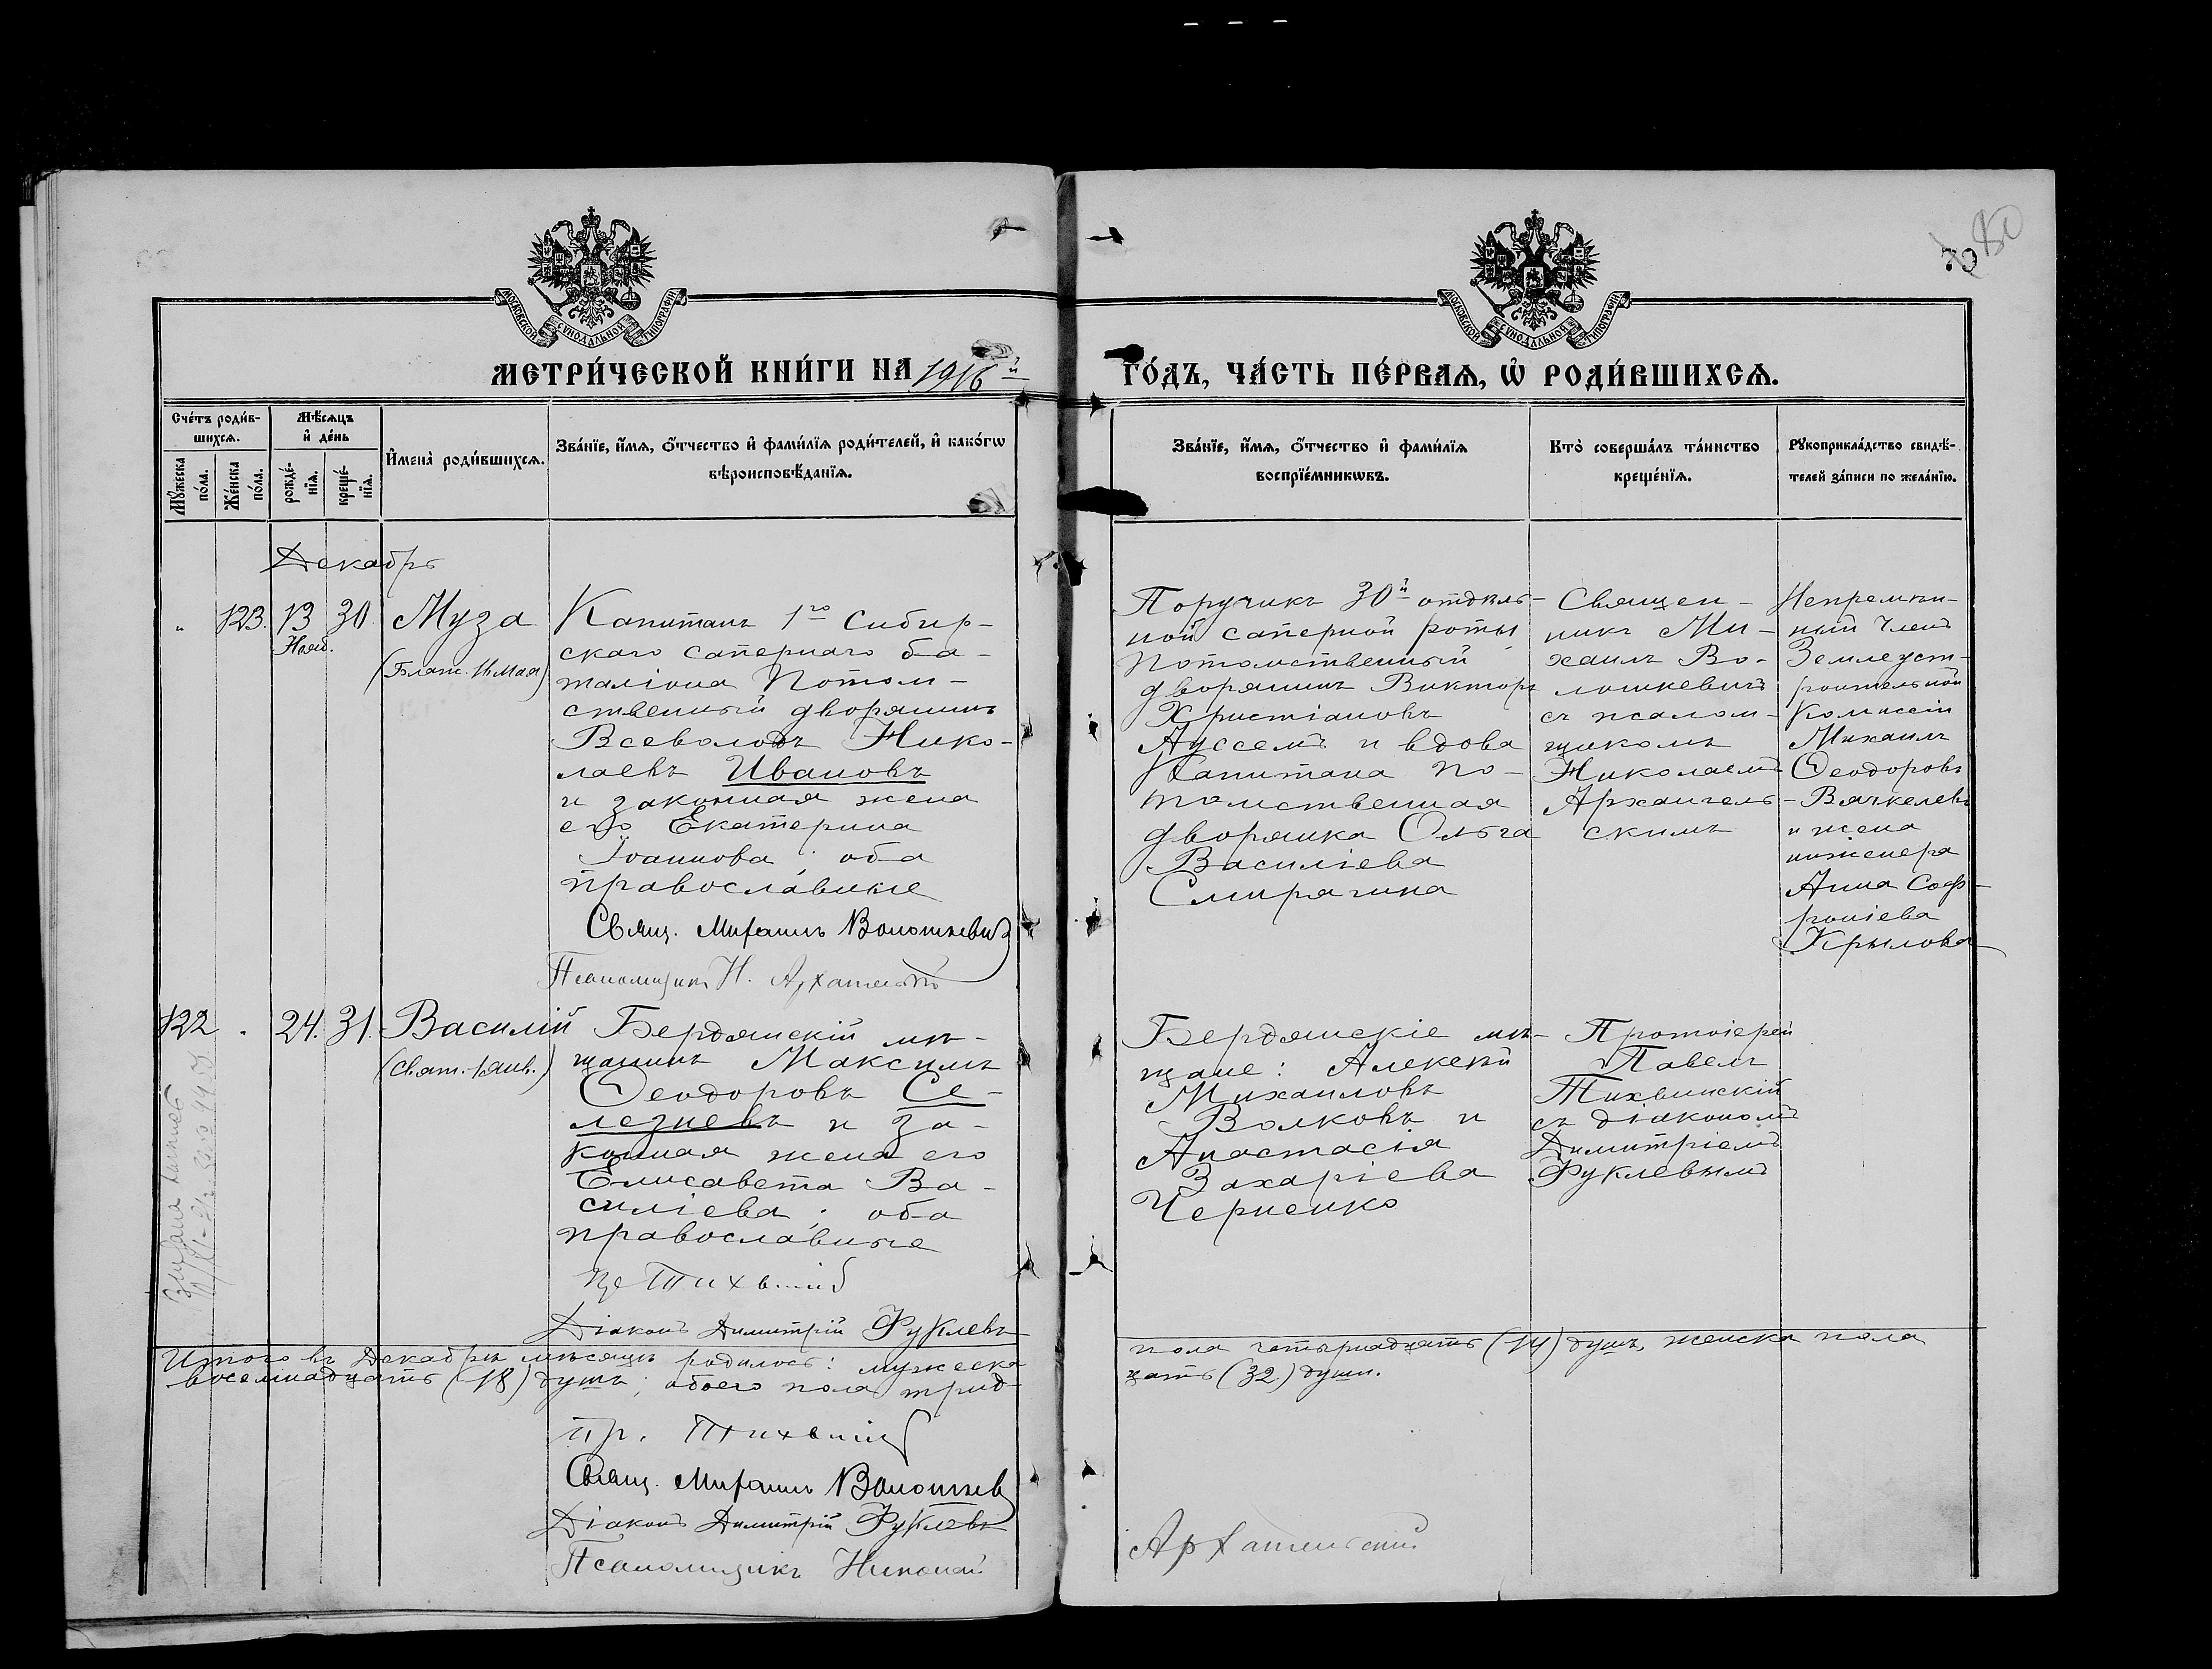 МОСКОВСКОЙ СУНОДАЛЬНОЙ ТИПОГРАФІИ
МОСКОВСКОЙ СУНОДАЛЬНОЙ ТИПОГРАФІИ
80
МЕТРИ́ЧЕСКОЙ КНИ́ГИ НА 1916й
ГО́ДЪ, ЧА́СТЬ ПЕ́РВАѦ, Ѡ҆ РОДИ́ВШИХСѦ.
Сче́тъ роди́в-
шихсѧ.
Мꙋ́жеска
по́ла.
Же́нска
по́ла.
Мѣ́сѧцъ
и҆ де́нь
рожде́-
нїѧ.
креще́-
нїѧ.
И҆мена̀ роди́вшихсѧ.
Зва́нїе, и҆́мѧ, ѻ҆́тчество и҆ фами́лїѧ роди́телей, и҆ како́гѡ
вѣроисповѣ́данїѧ.
Зва́нїе, и҆́мѧ, ѻ҆́тчество и҆ фами́лїѧ
воспрїе́мникѡвъ.
Кто̀ соверша́лъ та́инство
креще́нїѧ.
Рꙋкоприкла́дство свидѣ́-
телей за́писи по жела́нїю.
Декабрь
"
123.
13
Нояб.
30
Муза
Капитанъ 1го Сибир-
скаго сапернаго ба-
таліона Потом-
ственный дворянинъ
Всеволодъ Нико-
лаевъ Ивановъ
и законная жена
его Екатерина
Іоаннова; оба
православные
Свящ. Михаилъ Волошкевич
Псаломщикъ Н. Архангельскій
Поручикъ 30й отдѣль-
ной саперной роты
потомственный
дворянинъ Викторъ
Христіановъ
Ауссемъ и вдова
Капитана по-
томственная
дворянка Ольга
Василіева
Смирягина
Священ-
никъ Ми-
хаилъ Во-
лошкевичъ
съ псалом-
щикомъ
Николаемъ
Архангель-
скимъ
Непремѣн-
ный Членъ
Землеуст-
роительной
Комиссіи
Михаилъ
Ѳеодоровъ
и жена
инженера
Анна Соф-
роніева
Крылова
122
.
24.
31.
Василій
(Свят. 1 янв.)
Бердянскій мѣ-
щанинъ Максимъ
Ѳеодоровъ Се-
лезневъ и за-
конная жена его
Елисавета Ва-
силіева; оба
православные
Тихвинскій
Діаконъ Димитрій Фуклевъ
Бердянскіе мѣ-
щане: Алексѣй
Михаиловъ
Волковъ и
Анастасія
Захаріева
Черненко
Протоіерей
Павелъ
Тихвинскій
съ діакономъ
Димитріемъ
Фуклевымъ
Итого въ Декабрѣ мѣсяцѣ родилось: мужеска
пола четырнадцать (14) душъ, женска пола
восемнадцать (18) душъ; обоего пола трид-
цать (32) души.
Пр. Тихвинскій
Свящ. Михаилъ Волошкев
Діаконъ Димитрій Фуклевъ
Псаломщикъ Николай
Архангельскій